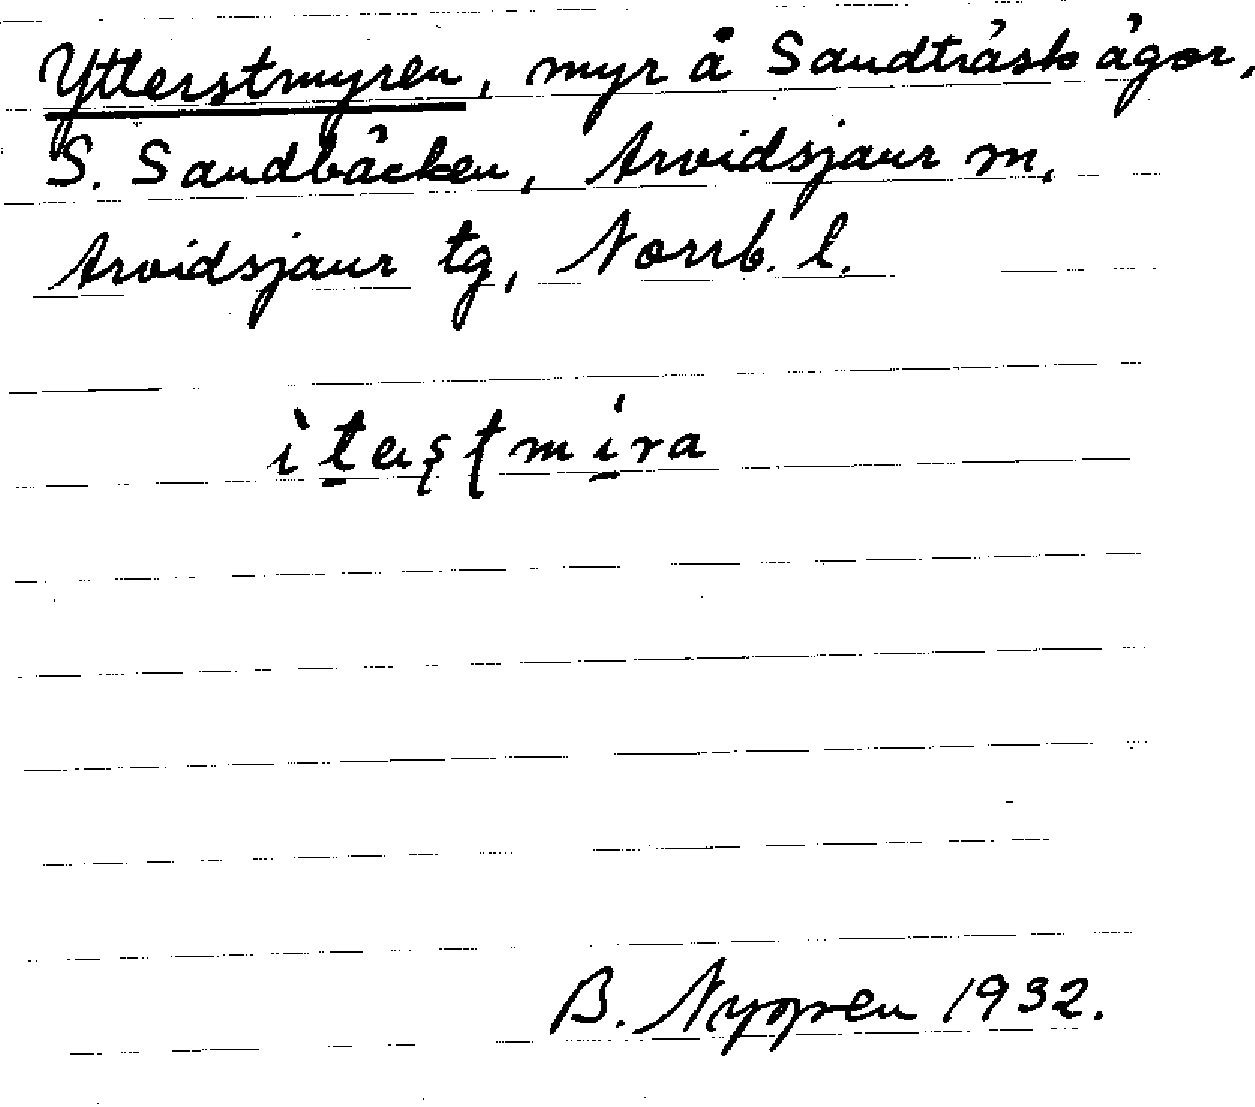 Ytterstmyren, myr å Sandträsk ägor,
S. Sandbäcken, Arvidsjaur sn,
Arvidsjaur tg, Norrb. l.
B. Nygren 1932.